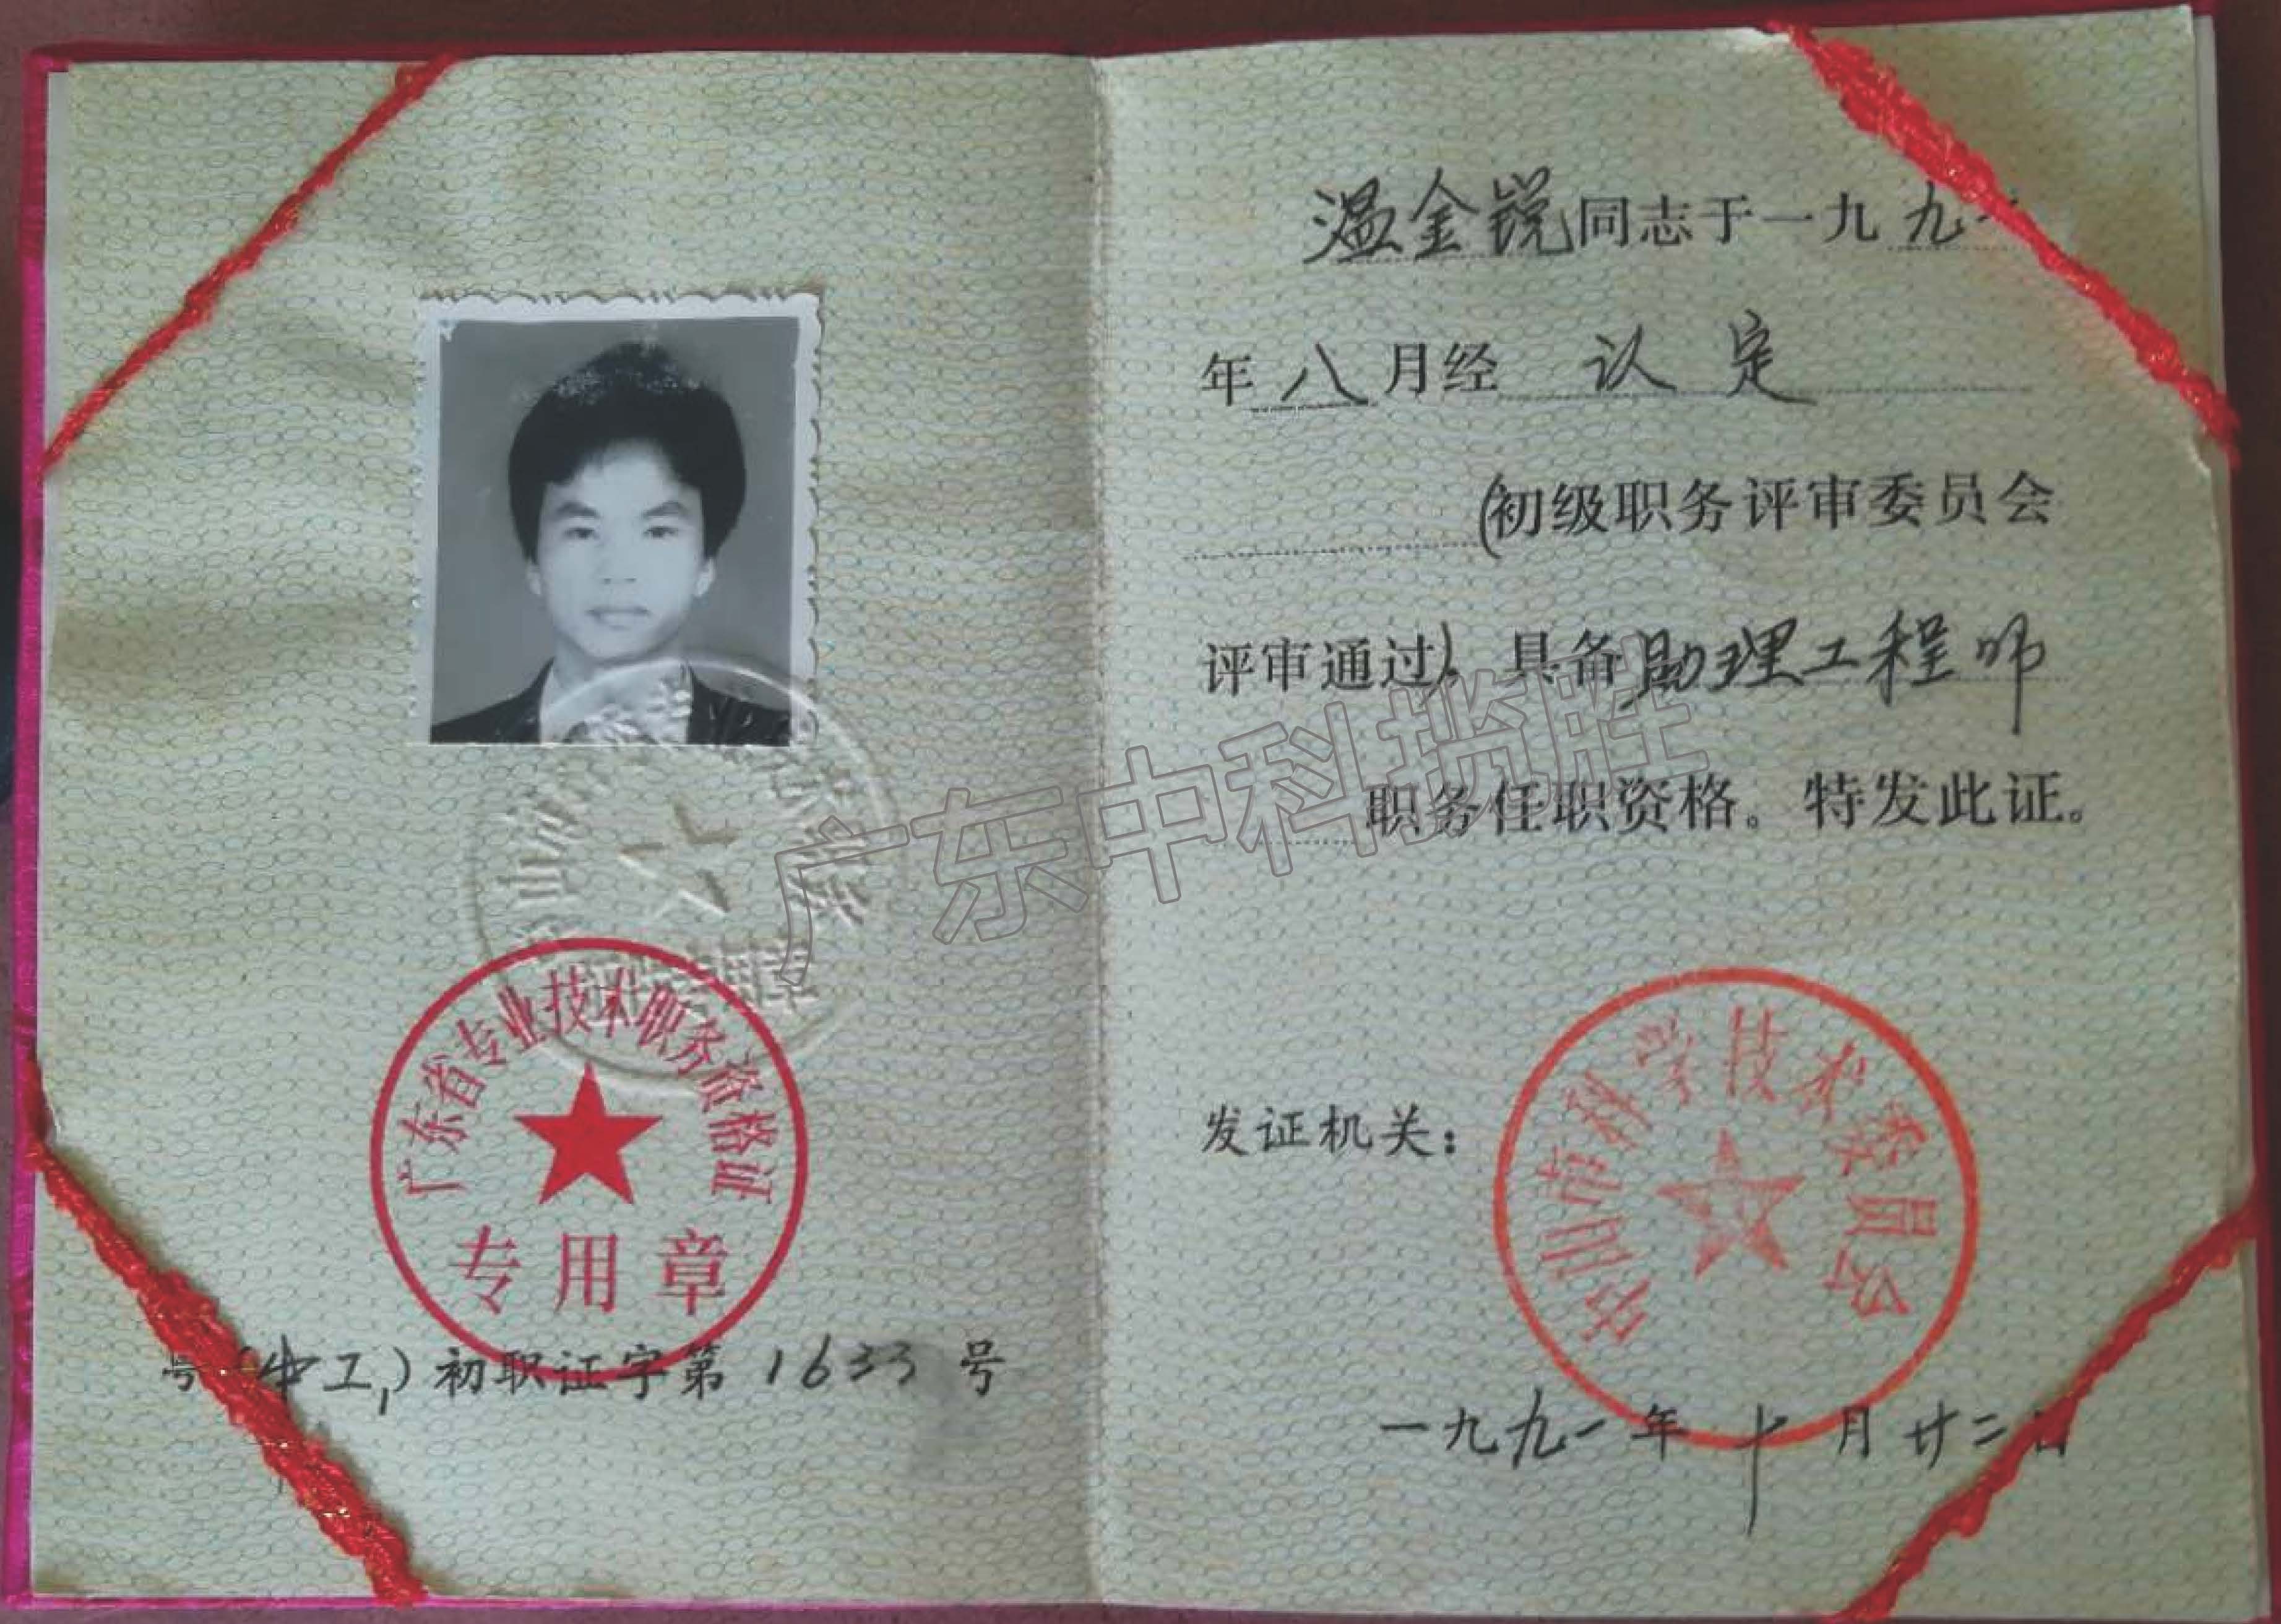 广东省专业技术职务资格证
专用章
号(中工)初职证字第1633号
温金锐同志于一九九一
年八月经认定
(初级职务评审委员会
评审通过),具备助理工程师
职务任职资格。特发此证。
发证机关:
中山市科学技术委员会
一九九一年十月廿二日
广东中科瑞胜